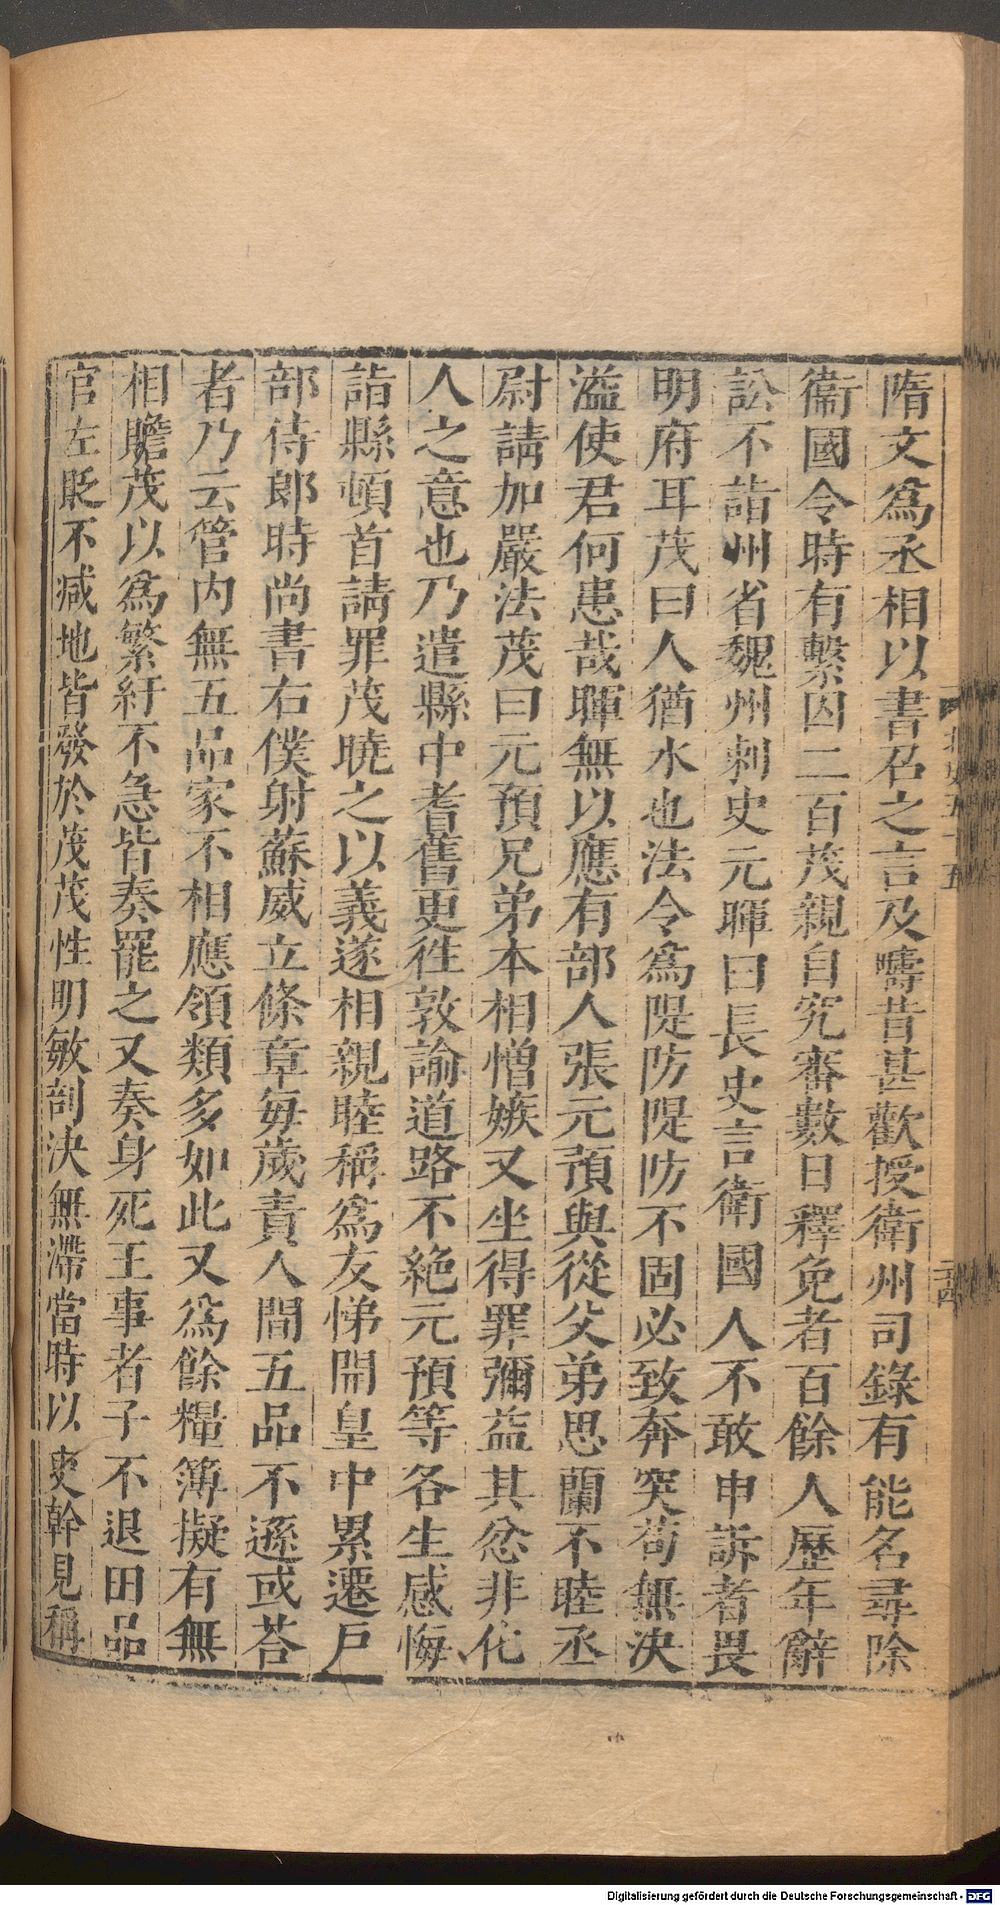 隋文爲丞相以書召之言及疇昔甚歡授衛州司錄有能名尋除
衞國令時有繫囚二百茂親自究審數日釋免者百餘人歷年辭
訟不詣州省魏州刺史元暉曰長史言衛國人不敢申訴者畏
明府耳茂曰人猶水也法令爲隄防隄防不固必致奔突苟無決
溢使君何患哉暉無以應有部人張元預與從父弟思蘭不睦丞
尉請加嚴法茂曰元預兄弟本相憎嫉又坐得罪彌益其忿非化
人之意也乃遣縣中耆舊更往敦諭道路不絶元預等各生感悔
詣縣頓首請罪茂曉之以義遂相親睦稱爲友悌開皇中累遷戸
部侍郎時尚書右僕射蘇威立條章每歲責人間五品不遜或荅
者乃云管内無五品家不相應領類多如此又爲餘糧簿擬有無
相贍茂以爲繁紆不急皆奏罷之又奏身死王事者子不退田品
官左貶不減地皆發於茂茂性明敏剖決無滯當時以吏幹見稱
北史五十五
Digitalisierung gefördert durch die Deutsche Forschungsgemeinschaft - DFG